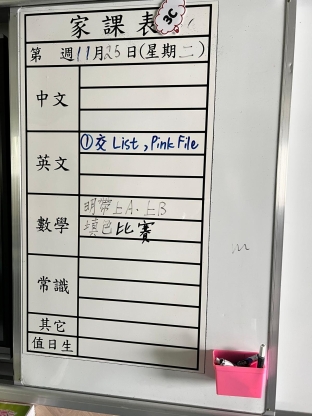 家課表
3C
第 週 11月25日(星期二)
中文
英文
①交 List, Pink File
數學
明帶上A、上B
填巴比賽
常識
其它
值日生